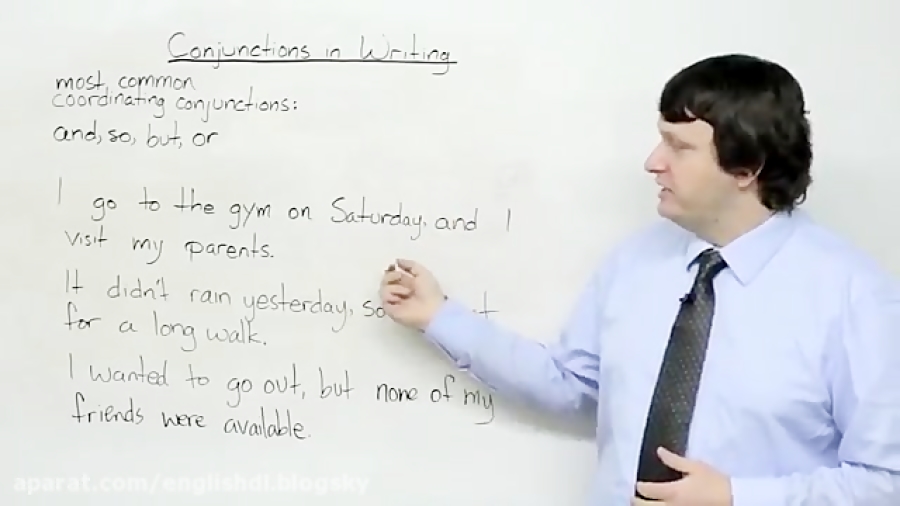 Conjunctions in Writing
most common
coordinating conjunctions:
and, so, but, or
I go to the gym on Saturday, and I
visit my parents.
It didn't rain yesterday, so
for a long walk.
I wanted to go out, but none of my
friends were available.
aparat.com/englishdl.blogsky